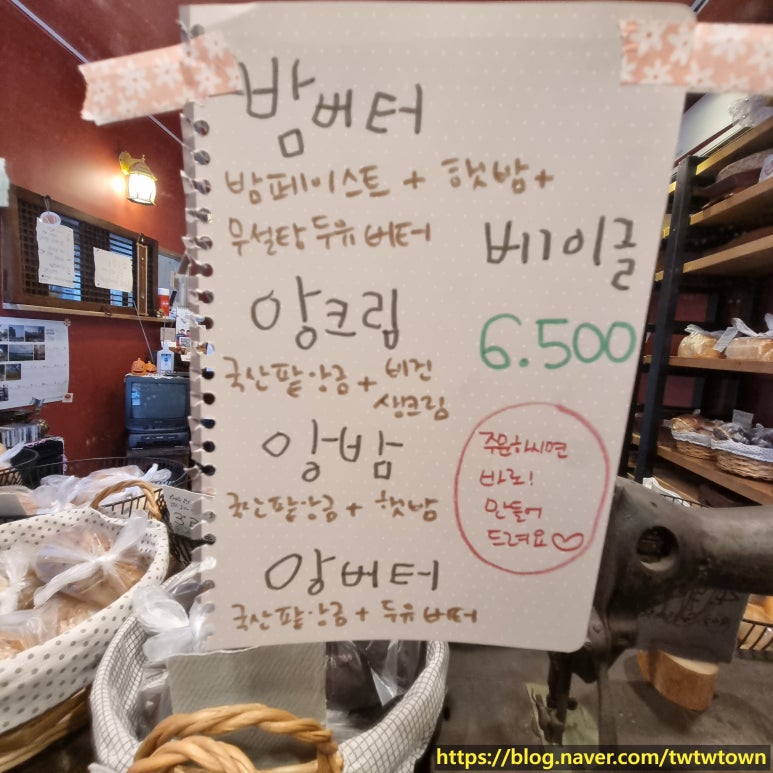 밤버터
밤페이스트 + 햇밤+
무설탕 두유버터
베이글
6.500
앙크림
국산팥앙금 + 비건
생크림
앙밤
국산팥앙금 + 햇밤
앙버터
국산팥앙금 + 두유버터
주문하시면
바로!
만들어
드려요♡
https://blog.naver.com/twtwtown